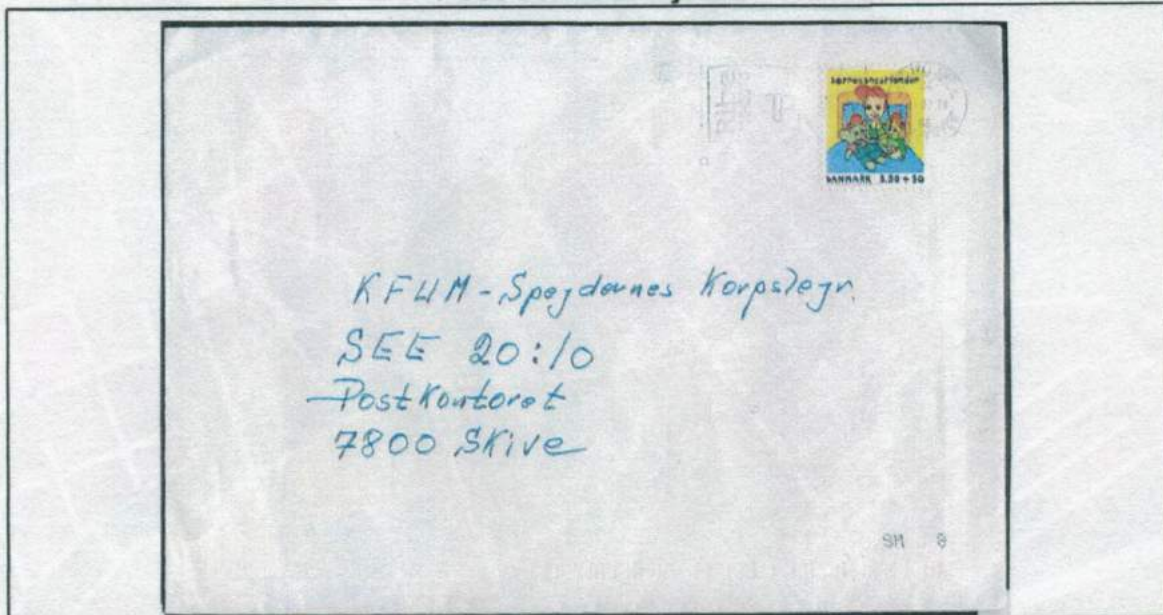 børnecancerfonden
DANMARK 3.50 + 50
KFUM - Spejdernes Korpslejr.
SEE 20:10
Postkontoret
7800 Skive
SM 8